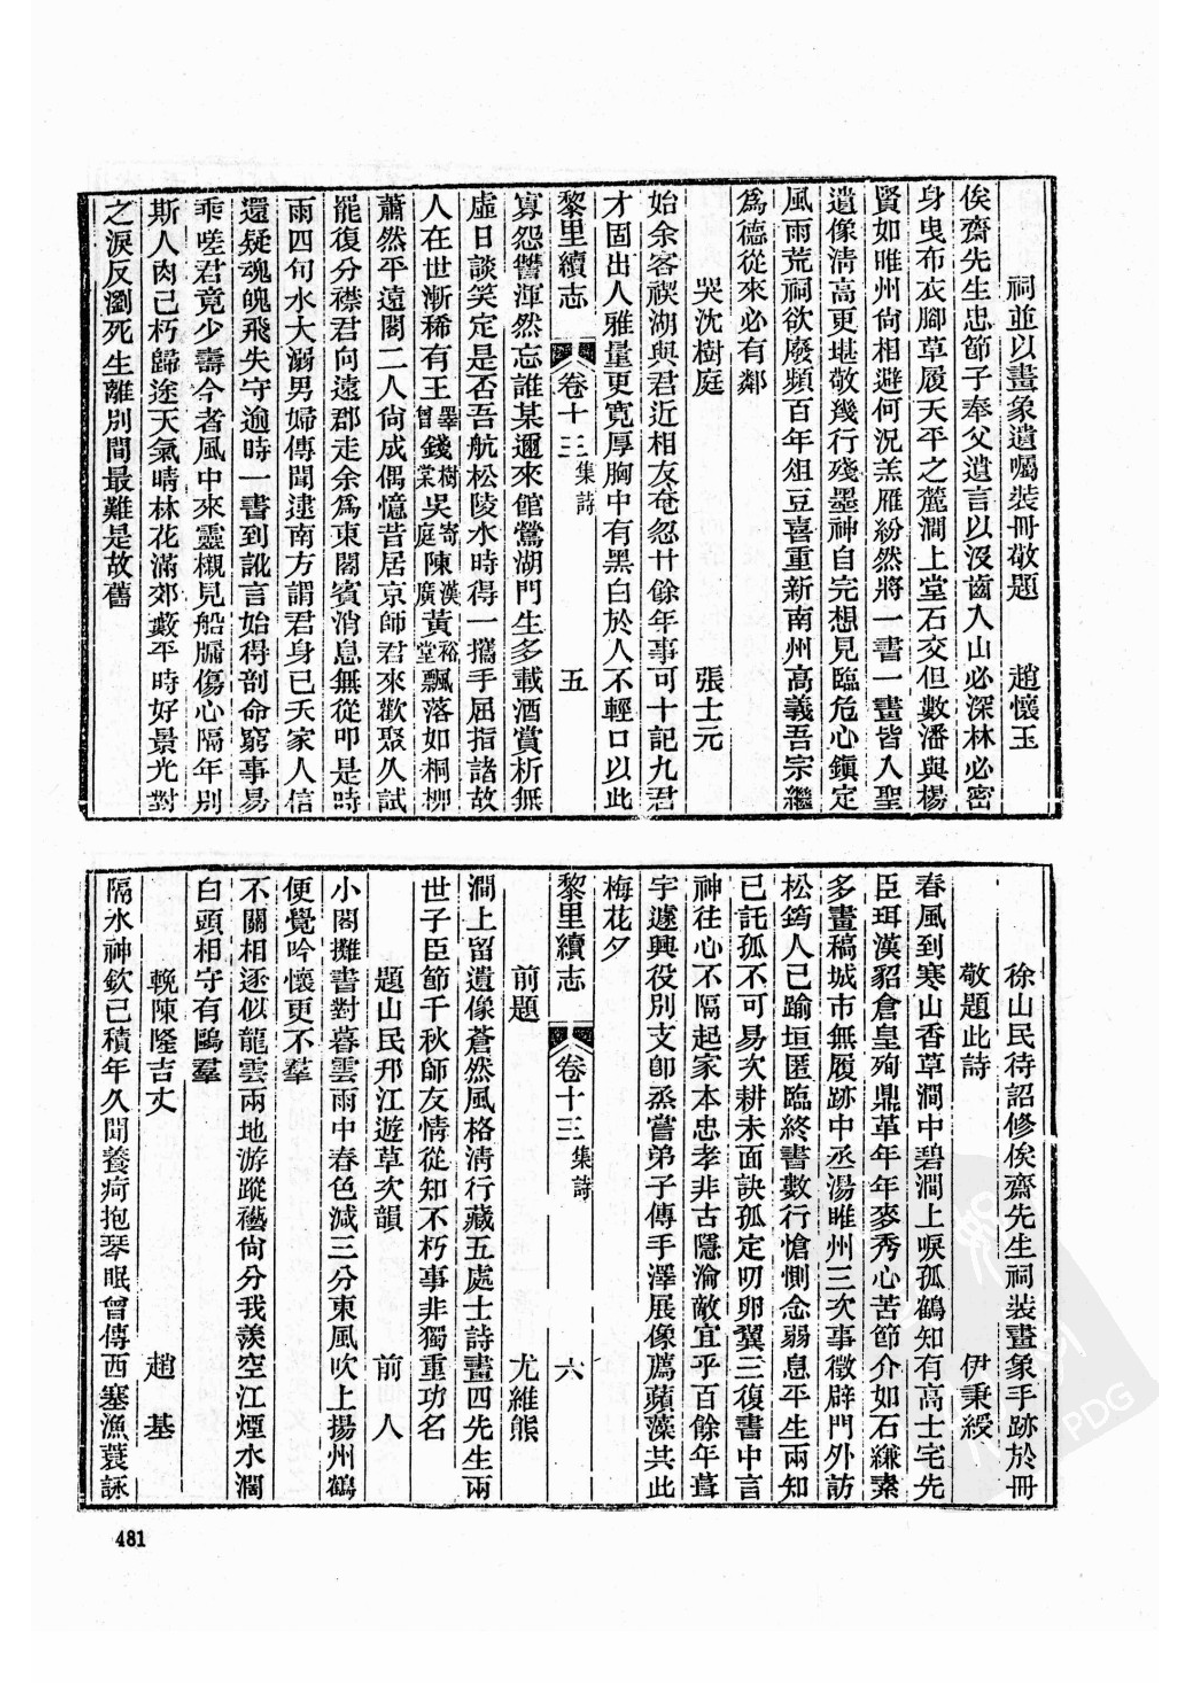 祠並以畫象遺囑裝冊敬題　趙懷玉
俟齋先生忠節子奉父遺言以沒齒入山必深林必密
身曳布衣腳草履天平之麓澗上堂石交但數潘與楊
賢如睢州尙相避何況羔雁紛然將一書一畫皆人聖
遺像淸高更堪敬幾行殘墨神自完想見臨危心鎭定
風雨荒祠欲廢頻百年俎豆喜重新南州高義吾宗繼
爲德從來必有鄰
哭沈樹庭　張士元
始余客禊湖與君近相友奄忽廿餘年事可十記九君
才固出人雅量更寬厚胸中有黑白於人不輕口以此
黎里續志　卷十三 集詩　五
寡怨讐渾然忘誰某邇來館鶯湖門生多載酒賞析無
虛日談笑定是否吾航松陵水時得一攜手屈指諸故
人在世漸稀有王曾墀錢樹棠吳寄庭陳漢廣黃裕堂飄落如桐柳
蕭然平遠閣二人尙成偶憶昔居京師君來歡聚久試
罷復分襟君向遠郡走余爲東閣賓消息無從叩是時
雨四句水大溺男婦傳聞逮南方謂君身已夭家人信
還疑魂魄飛失守逾時一書到訛言始得剖命窮事易
乖嗟君竟少壽今者風中來靈櫬見船牖傷心隔年別
斯人肉已朽歸途天氣晴林花滿郊藪平時好景光對
之淚反瀏死生離別間最難是故舊
徐山民待詔修俟齋先生祠裝畫象手跡於冊
敬題此詩　伊秉綬
春風到寒山香草澗中碧澗上唳孤鶴知有高士宅先
臣珥漢貂倉皇殉鼎革年年麥秀心苦節介如石縑素
多畫稿城市無履跡中丞湯睢州三次事徵辟門外訪
松筠人已踰垣匿臨終書數行愴惻念弱息平生兩知
己託孤不可易次耕未面訣孤定叨卵翼三復書中言
神往心不隔起家本忠孝非古隱淪敵宜乎百餘年葺
宇遽興役別支卽烝嘗弟子傳手澤展像薦蘋藻其此
梅花夕
黎里續志　卷十三 集詩　六
前題　尤維熊
澗上留遺像蒼然風格淸行藏五處士詩畫四先生兩
世子臣節千秋師友情從知不朽事非獨重功名
題山民邗江遊草次韻　前人
小閣攤書對暮雲雨中春色減三分東風吹上揚州鶴
便覺吟懷更不羣
不關相逐似龍雲兩地游蹤藝尙分我羨空江煙水濶
白頭相守有鷗羣
輓陳隆吉丈　趙基
隔水神欽已積年久聞養疴抱琴眠曾傳西塞漁蓑詠
481